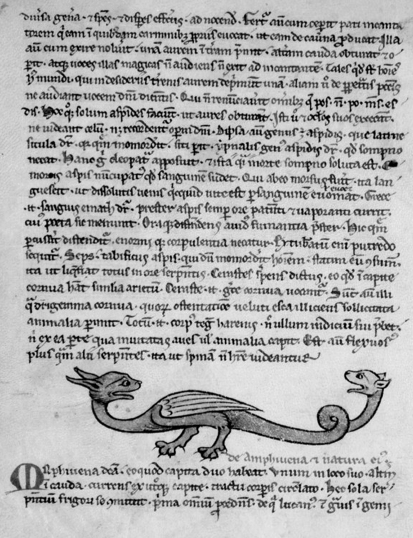 diuersa gena · & spes · & dispes effectus · ad nocend · Fert aū cum cepit pati incanta
torem q eam quibusdam carminibꝫ ppriis euocat · ut eam de cauerna pducat · illa
aū cum exire noluit · unā aurem in tram pmit · alteram cauda obturat & o
pit · atqꝫ uoces illas magicas n audiens n exit ad incantantē · Tales qd sunt hoies
hꝰ mundi · qui unā aurem depmunt
ne audiant uocem dni dicentis · Qui n renunciauerit omibꝫ q pos
dis · solum aspides faciunt · ut aures obturent · Isti & oclos suos excecant ·
ne uideant celū · n recordent opus dni · Dipsa aū genus aspidis · que latine
situla dr · qa quem momordit · siti perit · ypnalis genꝰ aspidis dr · qd sompno
necat · Hanc cleopatra apposuit · & ita morte sompno soluta est
morois aspis nūcupat qd sanguinē sudet · Qui ab eo morsus fuit · ita lan
guescit · ut dissolutis uenis qicquid uite est p sanguinē euomat · Grece
sanguis emath dr · Prester aspis semp ore patenti & uaporanti currit ·
cuiꝰ poeta sic meminit · Oraqꝫ distendens auid fumantia pster · Hic quem
percussit distenditur · enormi corpulentia necatur · putredo
sequitur · Seps · tabificus aspis · qui dū momordit hoiem · statim eū consumit
ita ut liqfiat totus in ore serpentis · Cerastes serpens dictus · eo qd in capite
cornua habet similia arietū · Cerastē grece cornua uocamus · Sunt aū illi
qdrigemina cornua · quorum ostentatione ueluti esca illiciens sollicitata
animalia perimit · Totū corpus tegit harenis · n ullum indiciū sui prebet ·
n ex ea parte qua inuitatas aues ul animalia capit · Est aū flexuosꝰ
plus quam alii serpentes · ita ut spinam n habere uideantur
de Amphiuena & natura eiꝰ
Amphiuena dcā · eo quod capita duo habeat · Unum in loco suo · Altm
in cauda · currens ex utroqꝫ capite · tractu corporis circulato · Hec sola ser
pentium frigori se cmittit · prima omnium procedens · de q lucanꝰ · & grauis in gemi